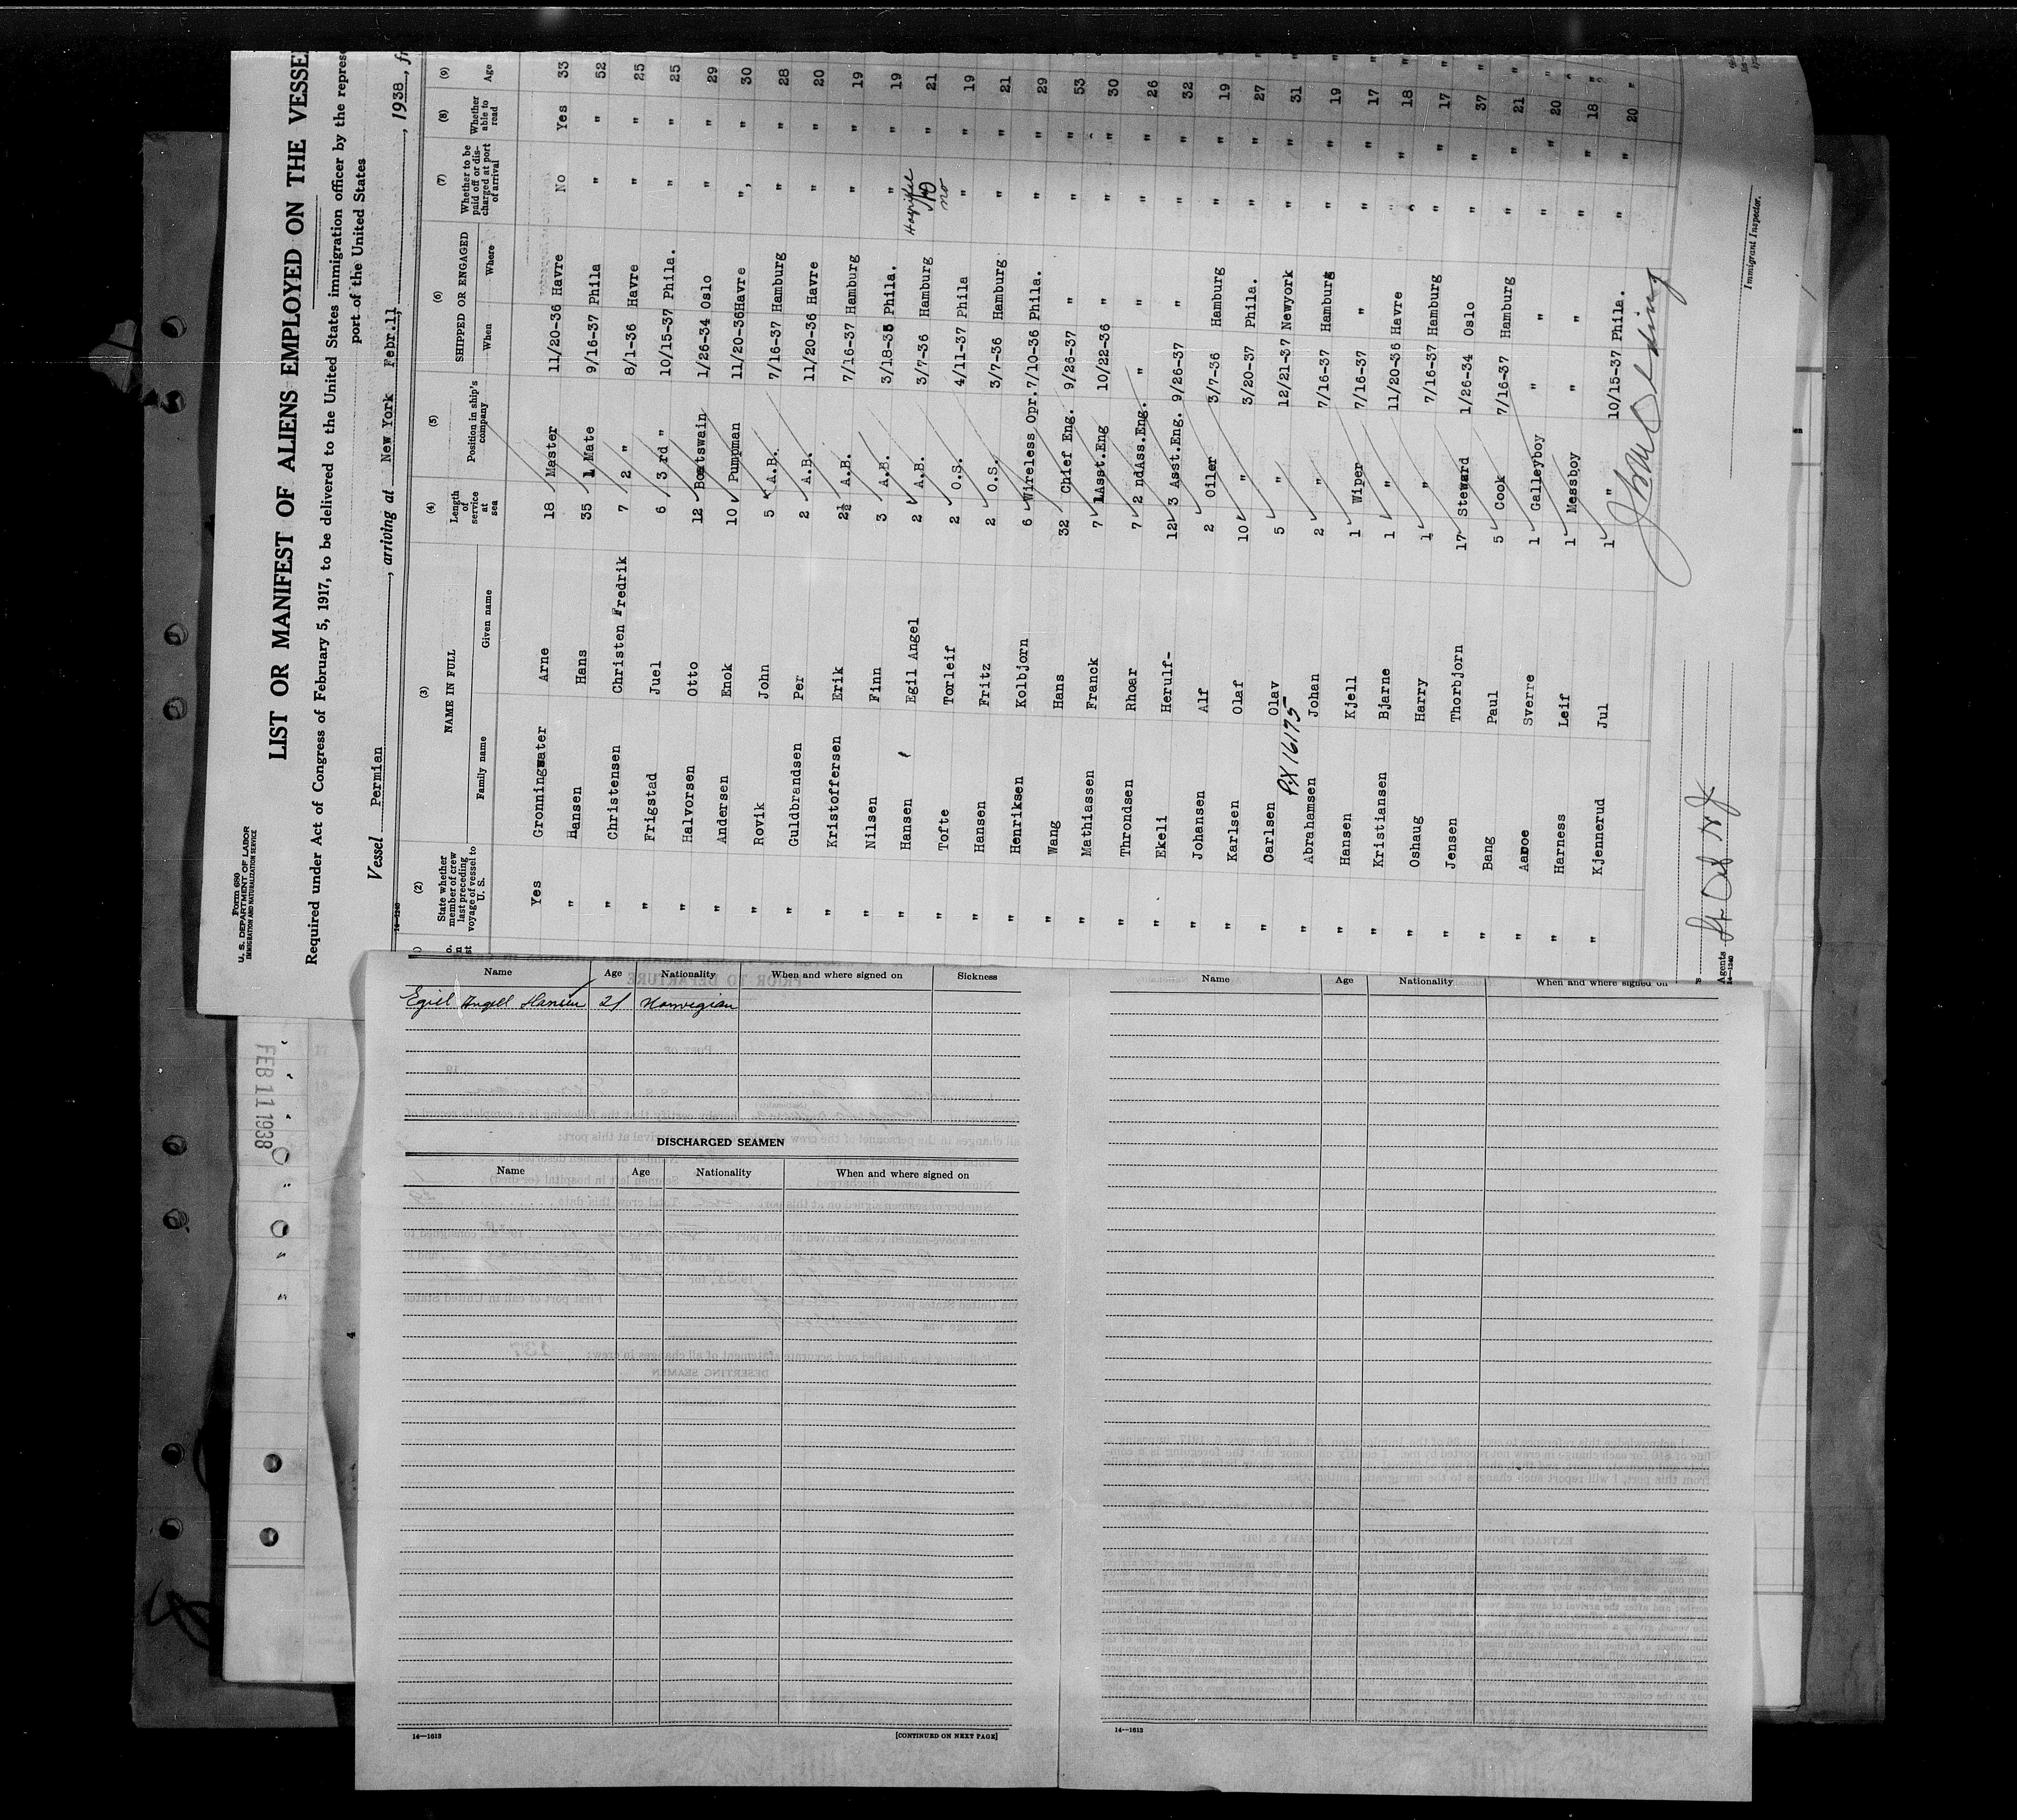 Form 680
U. S. DEPARTMENT OF LABOR
IMMIGRATION AND NATURALIZATION SERVICE
LIST OR MANIFEST OF ALIENS EMPLOYED ON THE VESSE
Required under Act of Congress of February 5, 1917, to be delivered to the United States immigration officer by the repres
port of the United States
Vessel Permian, arriving at New York Febr.11, 1938, fr
14-1240
(2) (3) (4) (5) (6) (7) (8) (9)
State whether member of crew last preceding voyage of vessel to U. S. NAME IN FULL Family name Given name Length of service at sea Position in ship's company SHIPPED OR ENGAGED When Where Whether to be paid off or discharged at port of arrival Whether able to read Age
Yes Gronningsater Arne 18 Master 11/20-36 Havre No Yes 33
" Hansen Hans 35 1 Mate 9/16-37 Phila " " 52
" Christensen Christen Fredrik 7 2 " 8/1-36 Havre " " 25
" Frigstad Juel 6 3 rd " 10/15-37 Phila. " " 25
" Halvorsen Otto 12 Boatswain 1/26-34 Oslo " " 29
" Andersen Enok 10 Pumpman 11/20-36 Havre " " 30
" Rovik John 5 A.B. 7/16-37 Hamburg " " 28
" Guldbrandsen Per 2 A.B. 11/20-36 Havre " " 20
" Kristoffersen Erik 2½ A.B. 7/16-37 Hamburg " " 19
" Nilsen Finn 3 A.B. 3/18-35 Phila. " " 19
" Hansen Egil Angel 2 A.B. 3/7-36 Hamburg " 21
" Tofte Torleif 2 O.S. 4/11-37 Phila no " " 19
" Hansen Fritz 2 O.S. 3/7-36 Hamburg " " 21
" Henriksen Kolbjorn 6 Wireless Opr. 7/10-36 Phila. " " 29
" Wang Hans 32 Chief Eng. 9/26-37 " " " 53
" Mathiassen Franck 7 1Asst.Eng 10/22-36 " " " 30
" Throndsen Rhoar 7 2 ndAss.Eng. " " " " 26
" Ekeli Herulf- 12 3 Asst.Eng. 9/26-37 " " " 32
" Johansen Alf 2 Oiler 3/7-36 Hamburg " " 19
" Karlsen Olaf 10 " 3/20-37 Phila. " " 27
" Carlsen Olav 5 " 12/21-37 Newyork " " 31
PX 16175
" Abrahamsen Johan 2 " 7/16-37 Hamburg " " 19
" Hansen Kjell 1 Wiper 7/16-37 " " " 17
" Kristiansen Bjarne 1 " 11/20-36 Havre " " 18
" Oshaug Harry 1 " 7/16-37 Hamburg " " 17
" Jensen Thorbjorn 17 Steward 1/26-34 Oslo " " 37
" Bang Paul 5 Cook 7/16-37 Hamburg " " 21
" Aaroe Sverre 1 Galleyboy " " " " 20
" Harness Leif 1 Messboy " " " " 18
" Kjennerud Jul 1 " 10/15-37 Phila. " " 20
Immigrant Inspector.
Agents
14-1240
FEB 11 1938
Name Age Nationality When and where signed on Sickness
Egiel Angell Hansen 21 Norwegian
DISCHARGED SEAMEN
Name Age Nationality When and where signed on
14-1613 [CONTINUED ON NEXT PAGE]
Name Age Nationality When and where signed on
14-1613